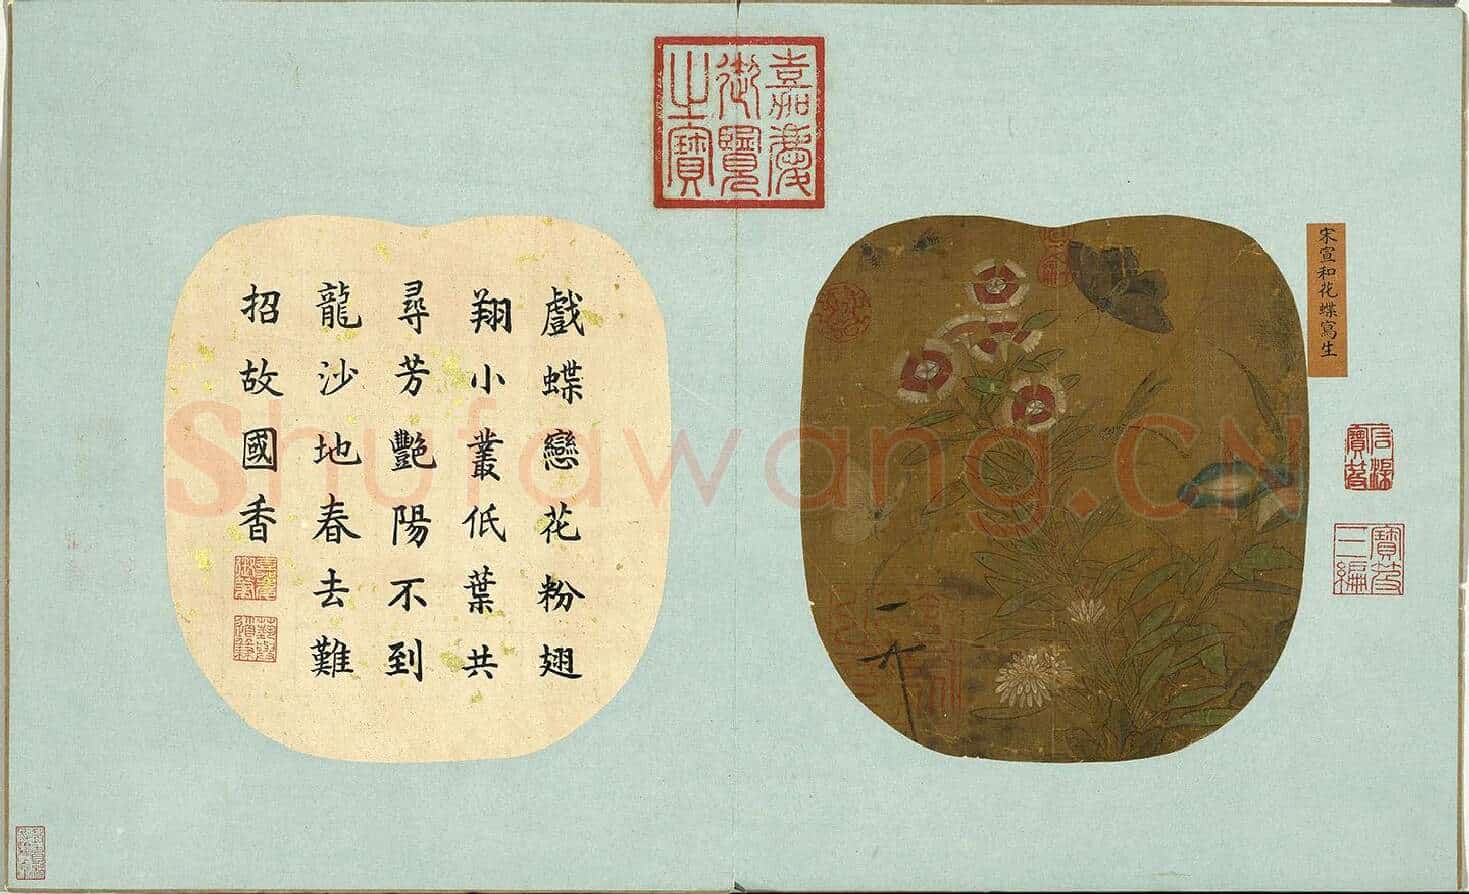 宋宣和花蝶寫生
嘉慶
御覽
之寶
戲蝶戀花粉翅
翔小叢低葉共
尋芳艷陽不到
龍沙地春去難
招故國香
寶笈
三編
Shufawang.CN